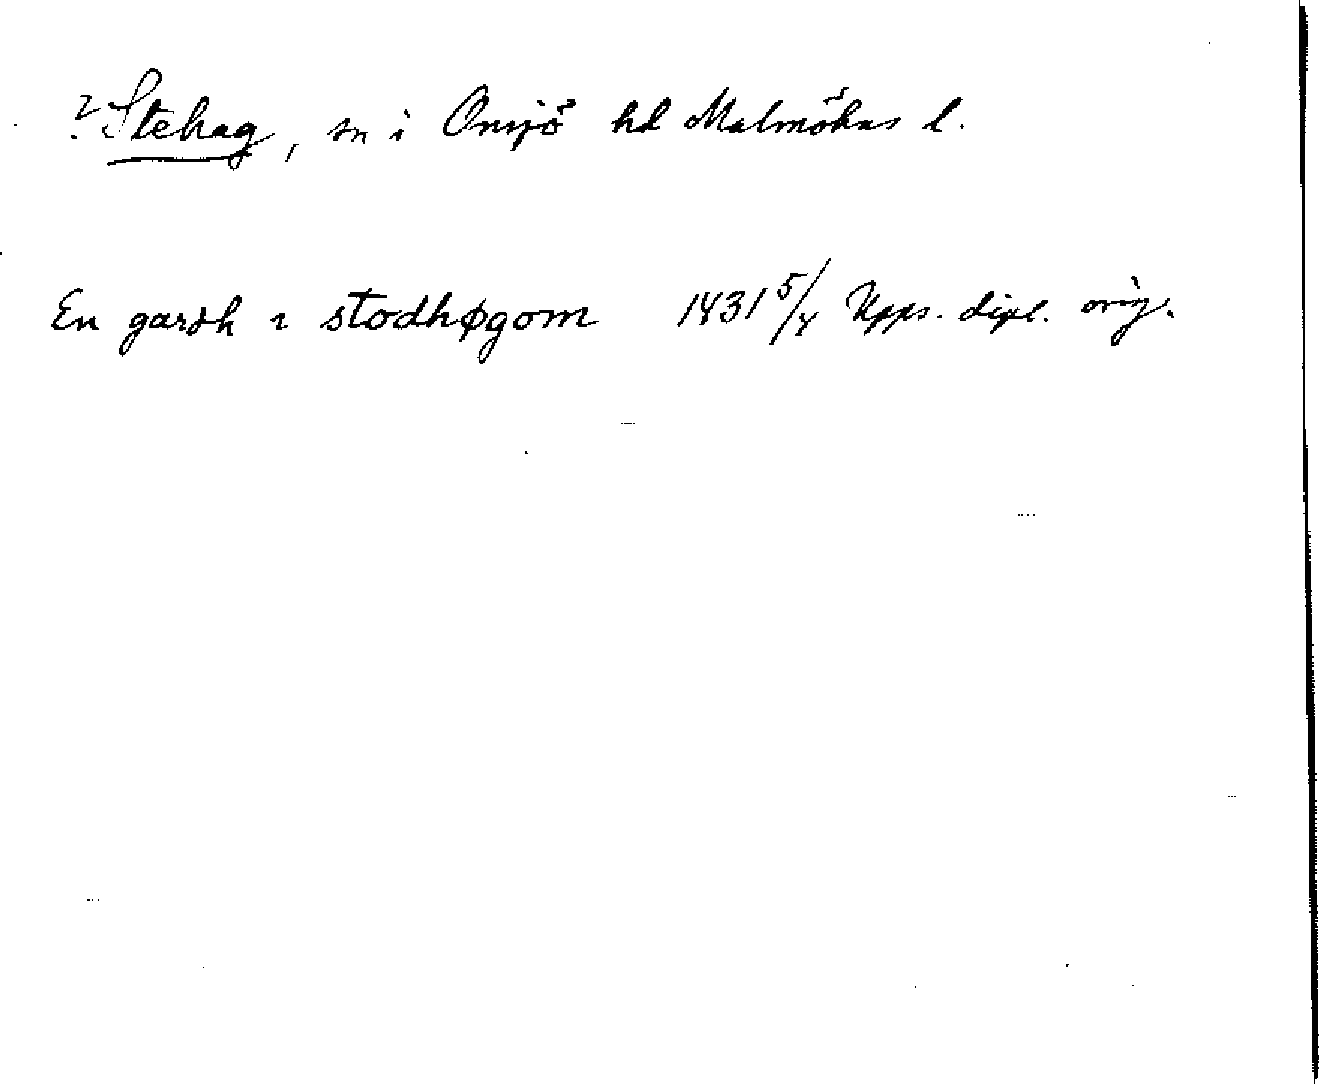 ? Stehag, sn i Onsjö hd Malmöhus l.
En gardh i stodhøgom 1431 5/4 Upps. dipl. orig.